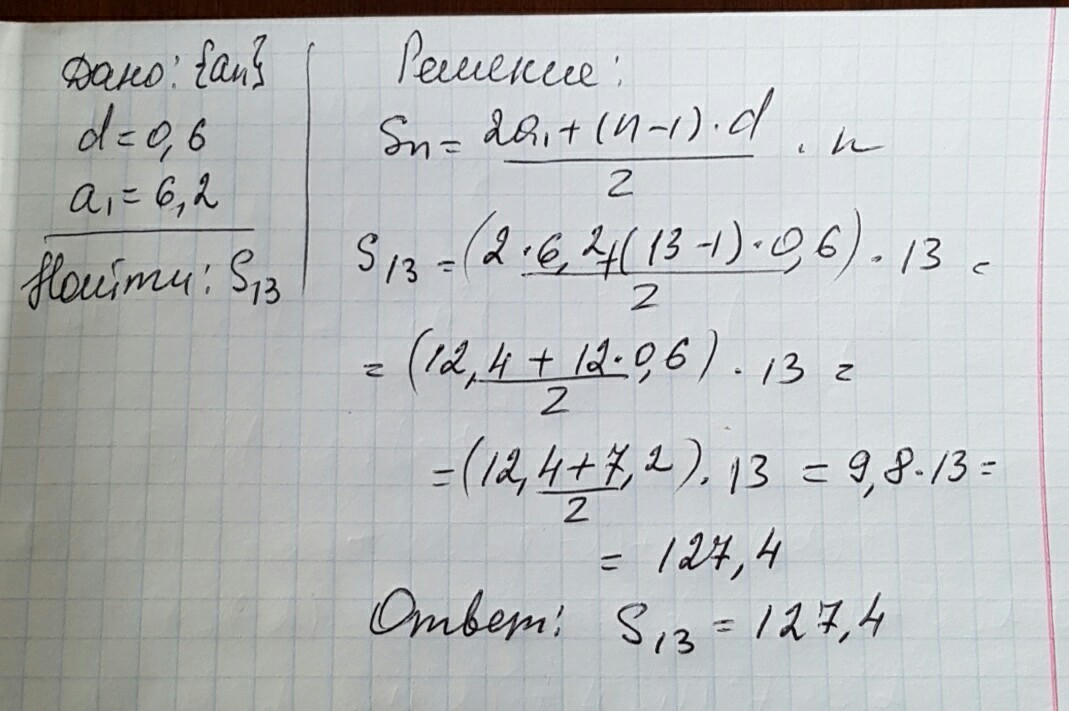 Дано: {an}
d = 0,6
a₁ = 6,2
Найти: S₁₃
Решение:
Sn = (2a₁ + (n-1)·d)/2 · n
S₁₃ = (2·6,2+(13-1)·0,6)/2 · 13 =
= (12,4 + 12·0,6)/2 · 13 =
= (12,4+7,2)/2 · 13 = 9,8·13 =
= 127,4
Ответ: S₁₃ = 127,4